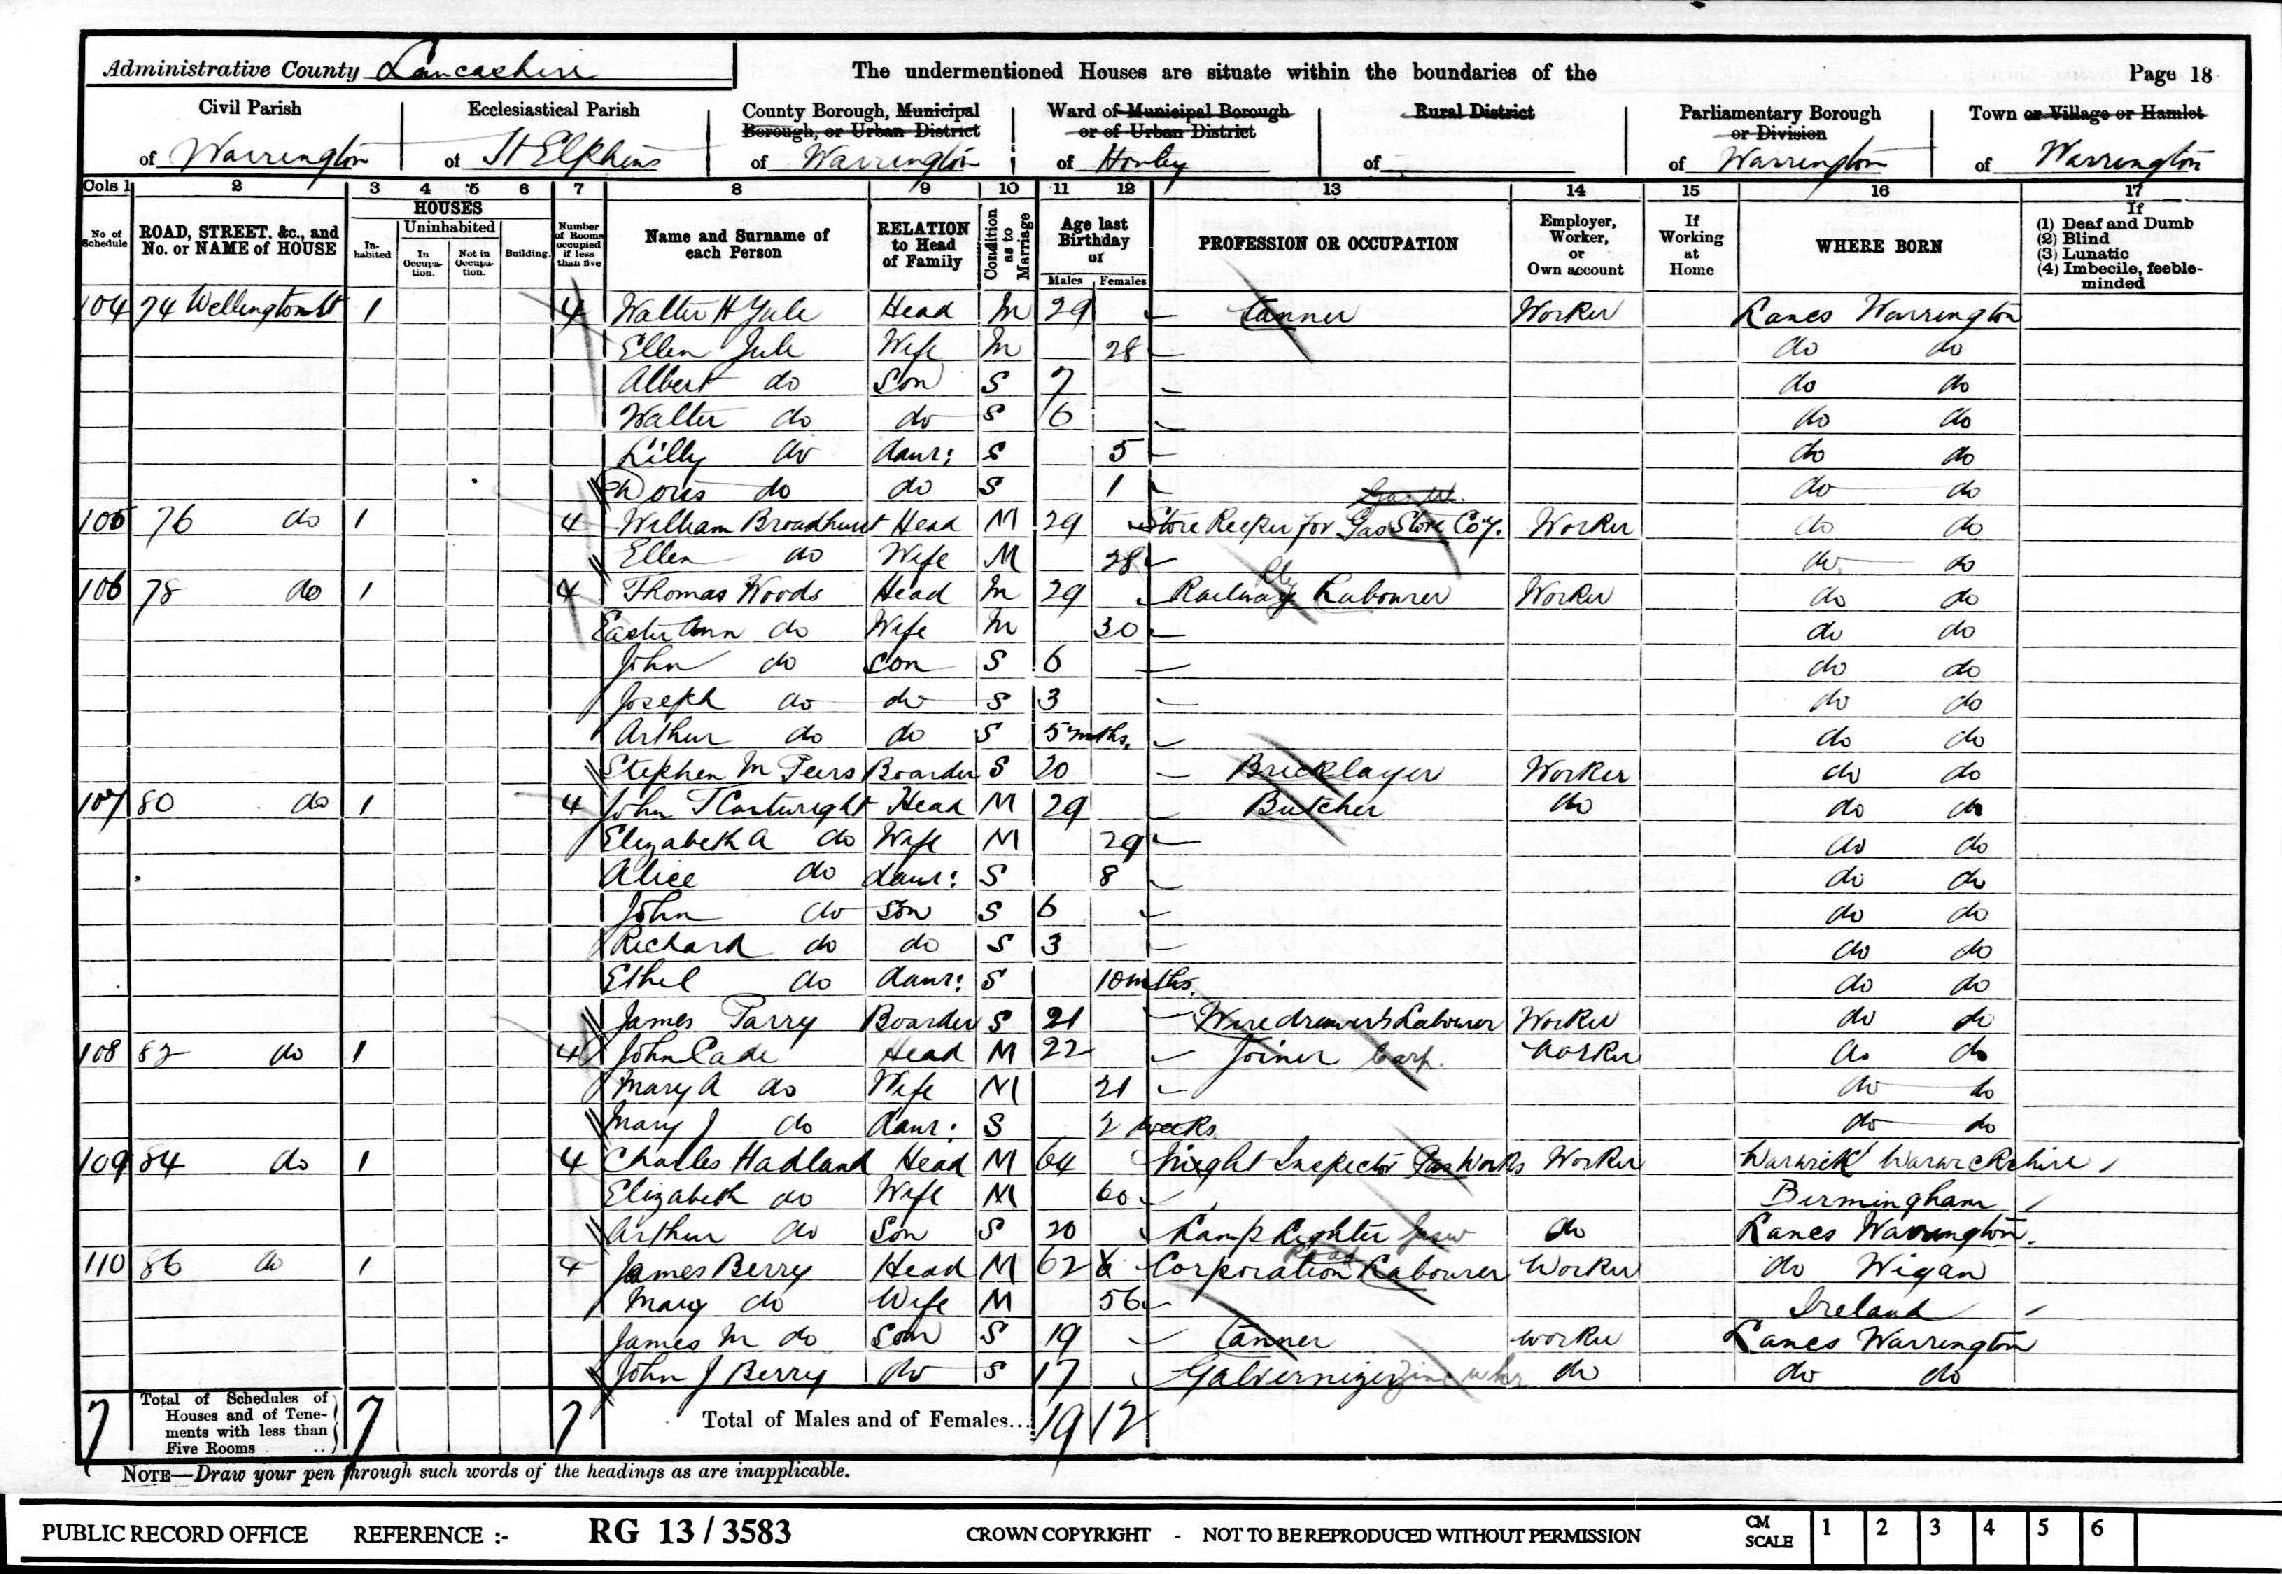 Administrative County Lancashire The undermentioned Houses are situate within the boundaries of the Page 18
Civil Parish Ecclesiastical Parish County Borough, Municipal Borough, or Urban District Ward of Municipal Borough or of Urban District Rural District Parliamentary Borough or Division Town or Village or Hamlet
of Warrington of St Elphins of Warrington of Howley of of Warrington of Warrington
Cols 1 2 3 4 5 6 7 8 9 10 11 12 13 14 15 16 17
No. of Schedule ROAD, STREET, &c., and No. or NAME of HOUSE HOUSES Inhabited Uninhabited In Occupation. Not in Occupation. Building. Number of Rooms occupied if less than five Name and Surname of each Person RELATION to Head of Family Condition as to Marriage Age last Birthday of Males Females PROFESSION OR OCCUPATION Employer, Worker, or Own account If Working at Home WHERE BORN If (1) Deaf and Dumb (2) Blind (3) Lunatic (4) Imbecile, feeble-minded
104 74 Wellington St 1 4 Walter H Yule Head M 29 Tanner Worker Lancs Warrington
Ellen Yule Wife M 28 do do
Albert do Son S 7 do do
Walter do do S 6 do do
Lilly do daur: S 5 do do
Doris do do S 1 do do
105 76 do 1 4 William Broadhurst Head M 29 Store Keeper for Gas Store Coy. Gas W. Worker do do
Ellen do Wife M 28 do do
106 78 do 1 4 Thomas Woods Head M 29 Railway Labourer Rly Worker do do
Easter Ann do Wife M 30 do do
John do son S 6 do do
Joseph do do S 3 do do
Arthur do do S 5 mths. do do
Stephen M Peers Boarder S 20 Bricklayer Worker do do
107 80 do 1 4 John T Cartwright Head M 29 Butcher do do do
Elizabeth A do Wife M 29 do do
Alice do daur: S 8 do do
John do son S 6 do do
Richard do do S 3 do do
Ethel do daur: S 10 mths. do do
James Parry Boarder S 21 Wiredrawer's Labourer Worker do do
108 82 do 1 4 John Cade Head M 22 Joiner Carp. Worker do do
Mary A do Wife M 21 do do
Mary J do daur: S 2 weeks do do
109 84 do 1 4 Charles Hadland Head M 64 Night Inspector Gas Works Worker Warwick Warwickshire
Elizabeth do Wife M 60 Birmingham
Arthur do Son S 20 Lamp Lighter Gasw do Lancs Warrington
110 86 do 1 4 James Berry Head M 62 Corporation Labourer Road Worker do Wigan
Mary do Wife M 56 Ireland
James M do Son S 19 Tanner worker Lancs Warrington
John J Berry do S 17 Galvernizer Zinc wkr do do do
7 Total of Schedules of Houses and of Tenements with less than Five Rooms 7 7 Total of Males and of Females... 19 12
NOTE—Draw your pen through such words of the headings as are inapplicable.
PUBLIC RECORD OFFICE REFERENCE :- RG 13 / 3583 CROWN COPYRIGHT - NOT TO BE REPRODUCED WITHOUT PERMISSION CM SCALE 1 2 3 4 5 6